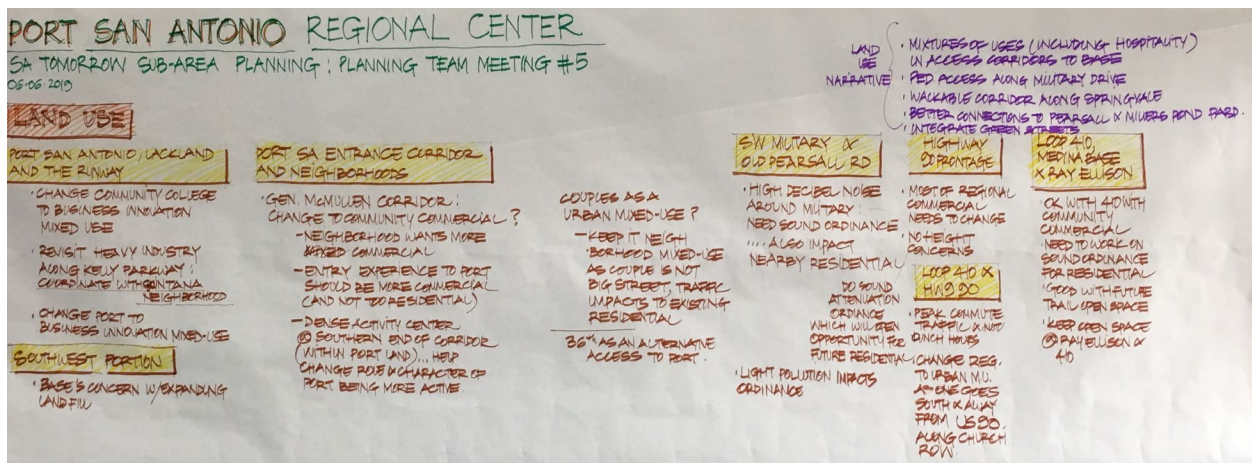 PORT SAN ANTONIO REGIONAL CENTER
SA TOMORROW SUB-AREA PLANNING : PLANNING TEAM MEETING #5
06·06·2019
LAND
USE
NARRATIVE
· MIXTURES OF USES (INCLUDING HOSPITALITY)
IN ACCESS CORRIDORS TO BASE
· PED ACCESS ALONG MILITARY DRIVE
· WALKABLE CORRIDOR ALONG SPRINGVALE
· BETTER CONNECTIONS TO PEARSALL & MILLERS POND PARD.
· INTEGRATE GREEN STREETS
LAND USE
PORT SAN ANTONIO, LACKLAND
AND THE RUNWAY
· CHANGE COMMUNITY COLLEGE
TO BUSINESS INNOVATION
MIXED USE
· REVISIT HEAVY INDUSTRY
ALONG KELLY PARKWAY :
COORDINATE WITH QUINTANA
NEIGHBORHOOD
· CHANGE PORT TO
BUSINESS INNOVATION MIXED-USE
SOUTHWEST PORTION
· BASE'S CONCERN W/EXPANDING
LANDFILL
PORT SA ENTRANCE CORRIDOR
AND NEIGHBORHOODS
· GEN. McMULLEN CORRIDOR :
CHANGE TO COMMUNITY COMMERCIAL ?
— NEIGHBORHOOD WANTS MORE
MIXED COMMERCIAL
— ENTRY EXPERIENCE TO PORT
SHOULD BE MORE COMMERCIAL
(AND NOT TOO RESIDENTIAL)
— DENSE ACTIVITY CENTER
@ SOUTHERN END OF CORRIDOR
(WITHIN PORT LAND)... HELP
CHANGE ROLE & CHARACTER OF
PORT BEING MORE ACTIVE
COUPLES AS A
URBAN MIXED-USE ?
— KEEP IT NEIGH
BORHOOD MIXED-USE
AS COUPLE IS NOT
BIG STREET, TRAFFIC
IMPACTS TO EXISTING
RESIDENTIAL
36TH AS AN ALTERNATIVE
ACCESS TO PORT.
SW MILITARY &
OLD PEARSALL RD
· HIGH DECIBEL NOISE
AROUND MILITARY :
NEED SOUND ORDINANCE
.... ALSO IMPACT
NEARBY RESIDENTIAL
DO SOUND
ATTENUATION
ORDIANCE
WHICH WILL OPEN
OPPORTUNITY FOR
FUTURE RESIDENTIAL
· LIGHT POLLUTION IMPACTS
ORDINANCE
HIGHWAY
90 FRONTAGE
· MOST OF REGIONAL
COMMERCIAL
NEEDS TO CHANGE
· NO HEIGHT
CONCERNS
LOOP 410 &
HWY 90
· PEAK COMMUTE
TRAFFIC & NOT
LUNCH HOURS
· CHANGE REG.
TO URBAN M.U.
AS ONE GOES
SOUTH & AWAY
FROM US 90.
ALONG CHURCH
ROW.
LOOP 410,
MEDINA BASE
& RAY ELLISON
· OK WITH 410 WITH
COMMUNITY
COMMERCIAL
· NEED TO WORK ON
SOUND ORDINANCE
FOR RESIDENTIAL
· GOOD WITH FUTURE
TRAIL OPEN SPACE
· KEEP OPEN SPACE
@ RAY ELLISON &
410